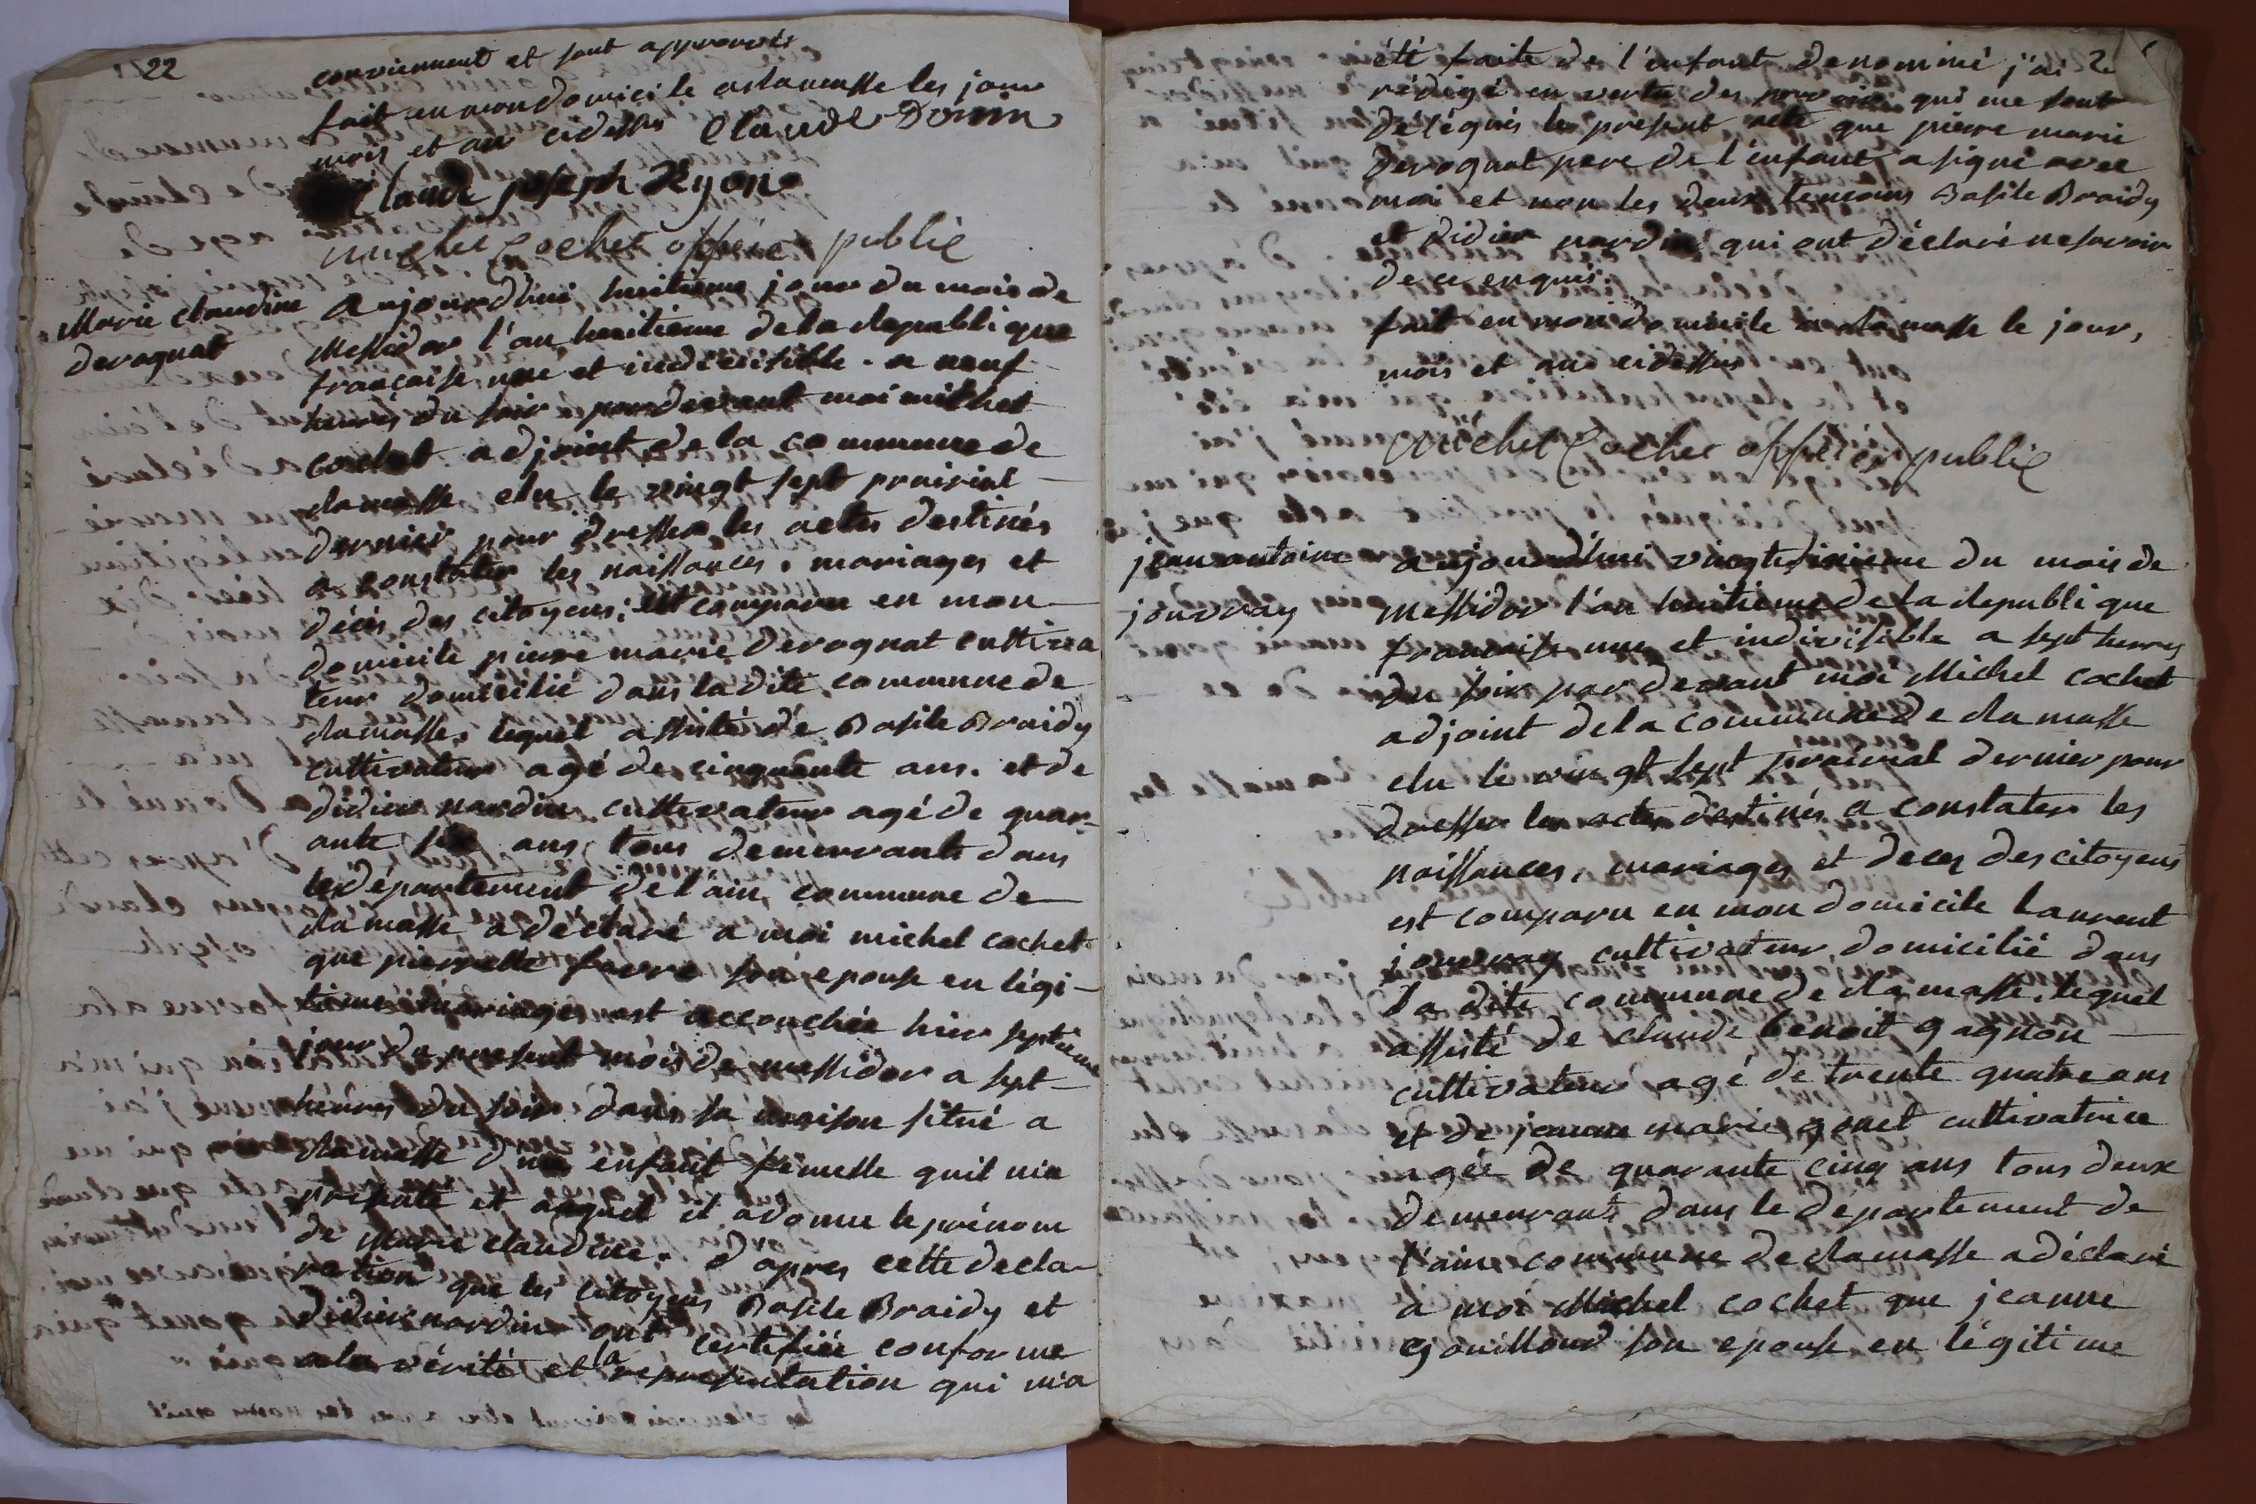 22
conviennent et sont approuvés
fait en mon domicile a clamasse les jour
mois et an cidessus Claude Domin
Claude joseph Ryon
michel Cochet officier public
Marie claudine
derognat
Aujourd'hui huitieme jour du mois de
Messidor l'an huitieme de la republique
française, une et indivisible. a neuf
heures du soir pardevant moi michel
cochet adjoint de la commune de
clamasse elu le vingt sept prairial
dernier pour dresser les actes destinés
a constater les naissances, mariages et
décès des citoyens; est comparu en mon
domicile pierre marie derognat cultiva
teur domicilié dans ladite commune de
clamasse, lequel assisté de Basile Braidy
cultivateur agé de cinquante ans. et de
didier nardin cultivateur agé de quar-
ante ans, tous demeurants dans
le département de l'ain, commune de
clamasse a déclaré a moi michel cochet
que pierrette favre son epouse en légi-
time mariage est accouchée hier septieme
jour du present mois de messidor a sept
heures du soir dans sa maison situé a
clamasse d'un enfant femelle quil m'a
presenté et auquel il a donné le prénom
de Marie claudine. d'apres cette decla-
ration que les citoyens Basile Braidy et
didier nardin ont certifiée conforme
a la vérité et la representation qui m'a
été faite de l'enfant denommé j'ai
rédigé en vertu des pouvoirs qui me sont
délégués le present acte que pierre marie
derognat pere de l'enfant a signé avec
moi et non les deux temoins Basile Braidy
et Didier nardin qui ont déclaré ne savoir
de ce enquis.
fait en mon domicile a clamasse le jour,
mois et an cidessus
michel Cochet officier public
jean antoine
jouvray
aujourd'hui vingtdixieme du mois de
Messidor l'an huitieme de la republique
francaise une et indivisible a sept heures
du soir par devant moi Michel cochet
adjoint de la commune de clamasse
elu le vingt sept prairial dernier pour
dresser les actes destinés a constater les
naissances, mariages et deces des citoyens
est comparu en mon domicile Laurent
jouvray cultivateur, domicilié dans
la dite commune de clamasse. lequel
assisté de claude benoit gagnon
cultivateur agé de trente quatre ans
et de jeanne marie gonet cultivatrice
agée de quarante cinq ans tous deux
demeurants dans le département de
l'ain commune de clamasse a déclaré
a moi Michel cochet que jeanne
gouilloud son epouse en légitime